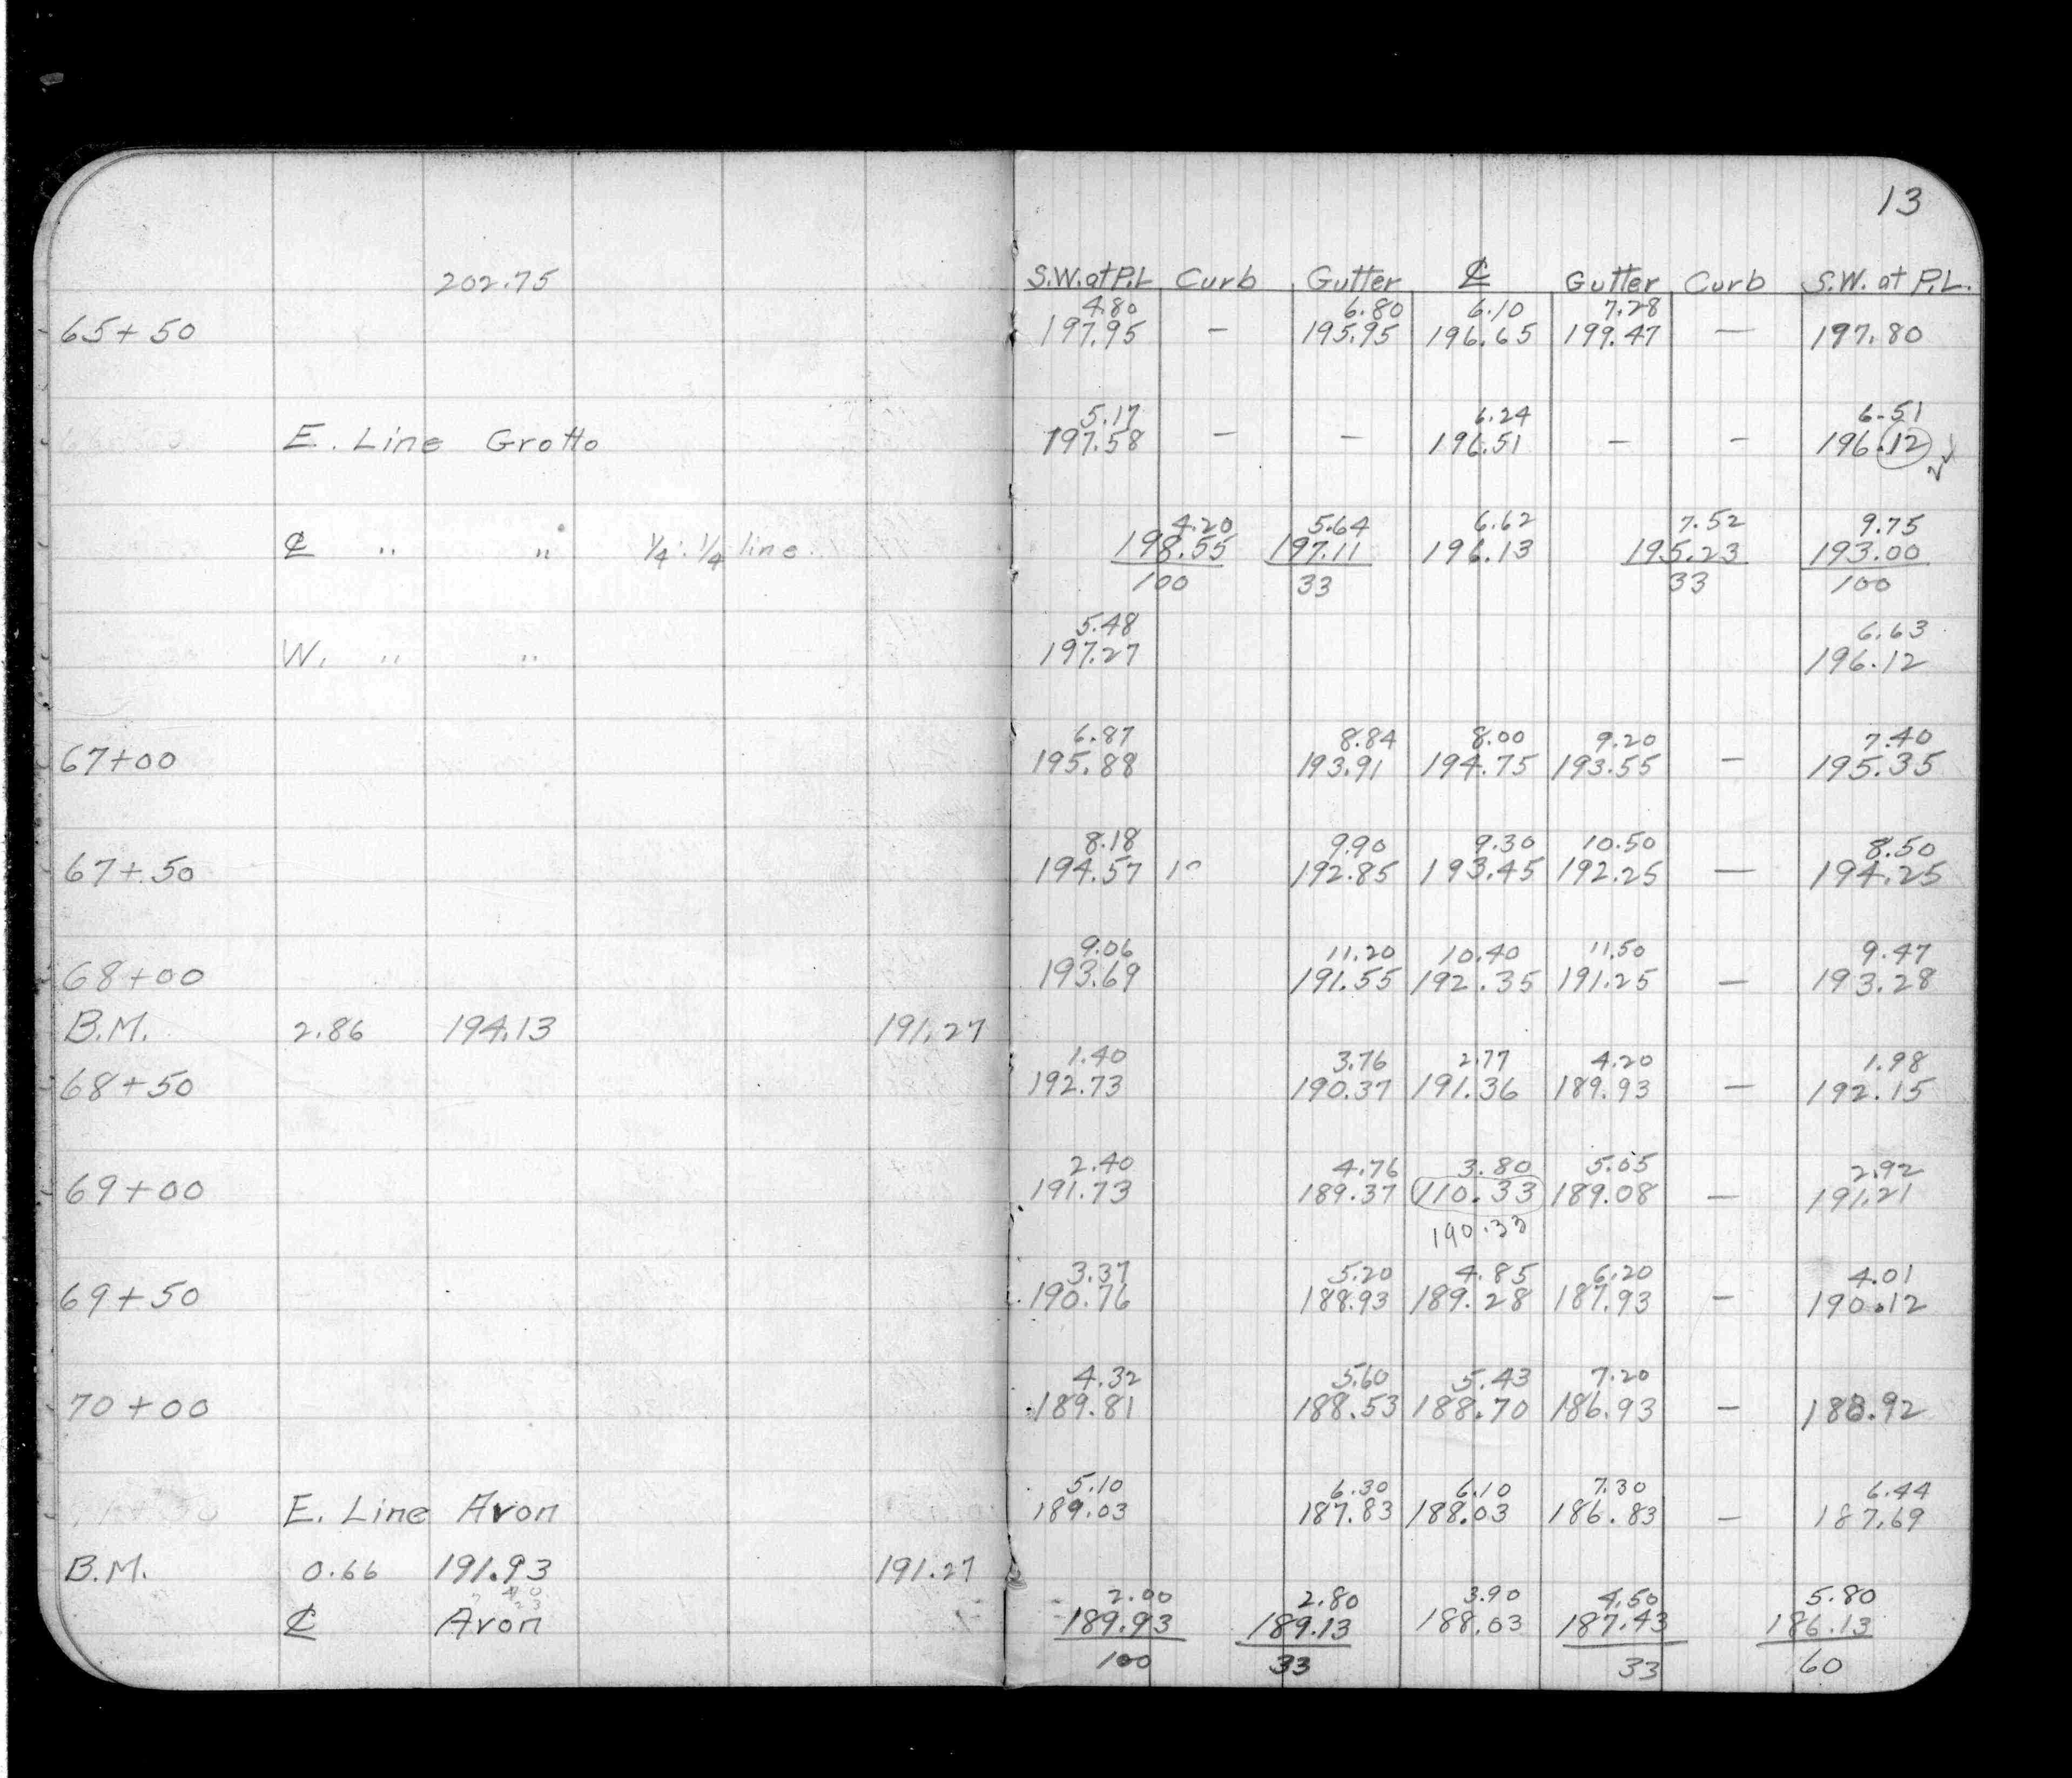 13
202.75 S.W. at P.L Curb Gutter ℄ Gutter Curb S.W. at P.L.
4.80 6.80 6.10 7.28
65+50 197.95 — 195.95 196.65 199.47 — 197.80
5.17 6.24 6.51
E. Line Grotto 197.58 — — 196.51 — — 196.12
24
4.20 5.64 6.62 7.52 9.75
℄ " " 1/4 : 1/4 line 198.55 197.11 196.13 195.23 193.00
100 33 33 100
5.48 6.63
W. " " 197.27 196.12
6.87 8.84 8.00 9.20 7.40
67+00 195.88 193.91 194.75 193.55 — 195.35
8.18 9.90 9.30 10.50 8.50
67+50 194.57 192.85 193.45 192.25 — 194.25
9.06 11.20 10.40 11.50 9.47
68+00 193.69 191.55 192.35 191.25 — 193.28
B.M. 2.86 194.13 191.27
1.40 3.76 2.77 4.20 1.98
68+50 192.73 190.37 191.36 189.93 — 192.15
2.40 4.76 3.80 5.05 2.92
69+00 191.73 189.37 110.33 189.08 — 191.21
190.33
3.37 5.20 4.85 6.20 4.01
69+50 190.76 188.93 189.28 187.93 — 190.12
4.32 5.60 5.43 7.20
70+00 189.81 188.53 188.70 186.93 — 188.92
5.10 6.30 6.10 7.30 6.44
E. Line Avon 189.03 187.83 188.03 186.83 — 187.69
B.M. 0.66 191.93 191.27
2.00 2.80 3.90 4.50 5.80
℄ Avon 189.93 189.13 188.03 187.43 186.13
100 33 33 60